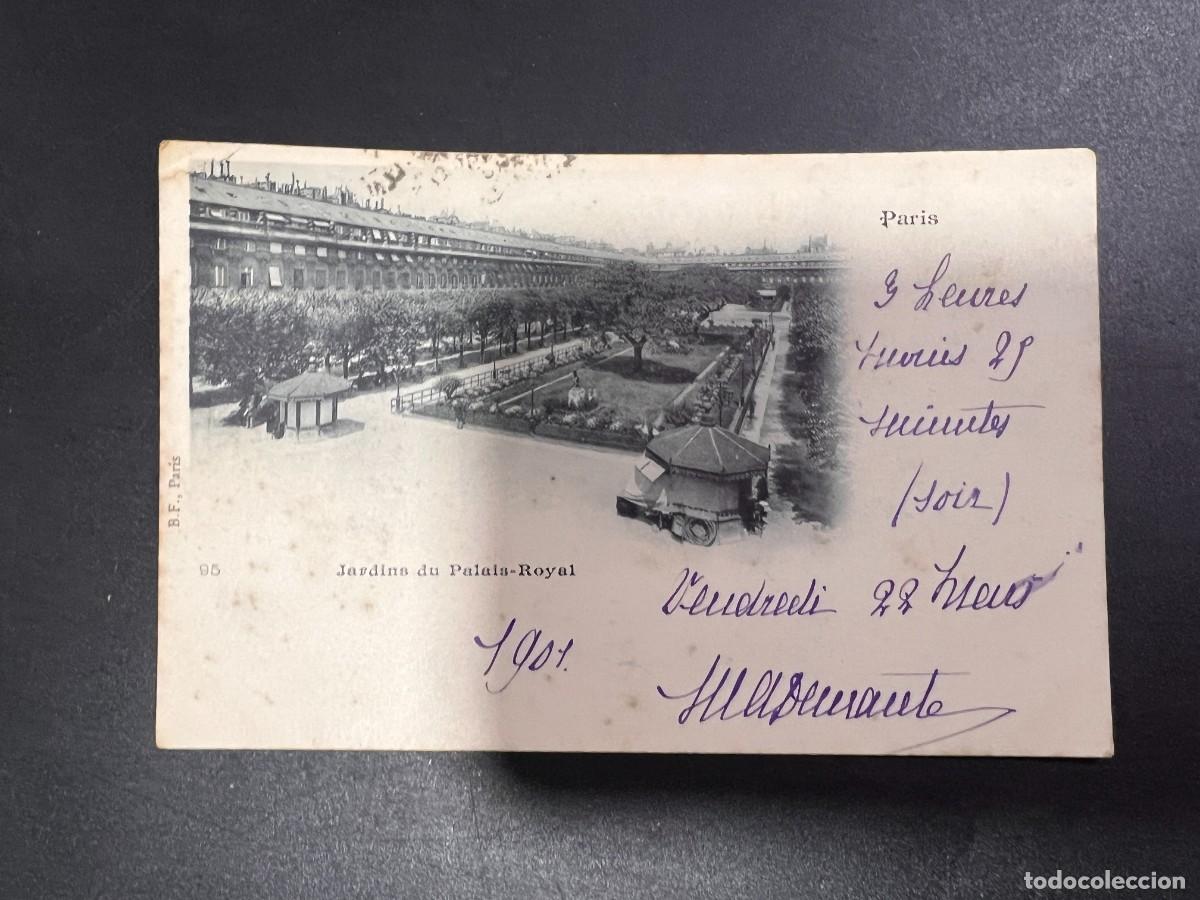 Paris
3 heures
moins 25
minutes
(soir)
Vendredi 22 Mars
1901.
B.F., Paris
95
Jardins du Palais-Royal
todocoleccion